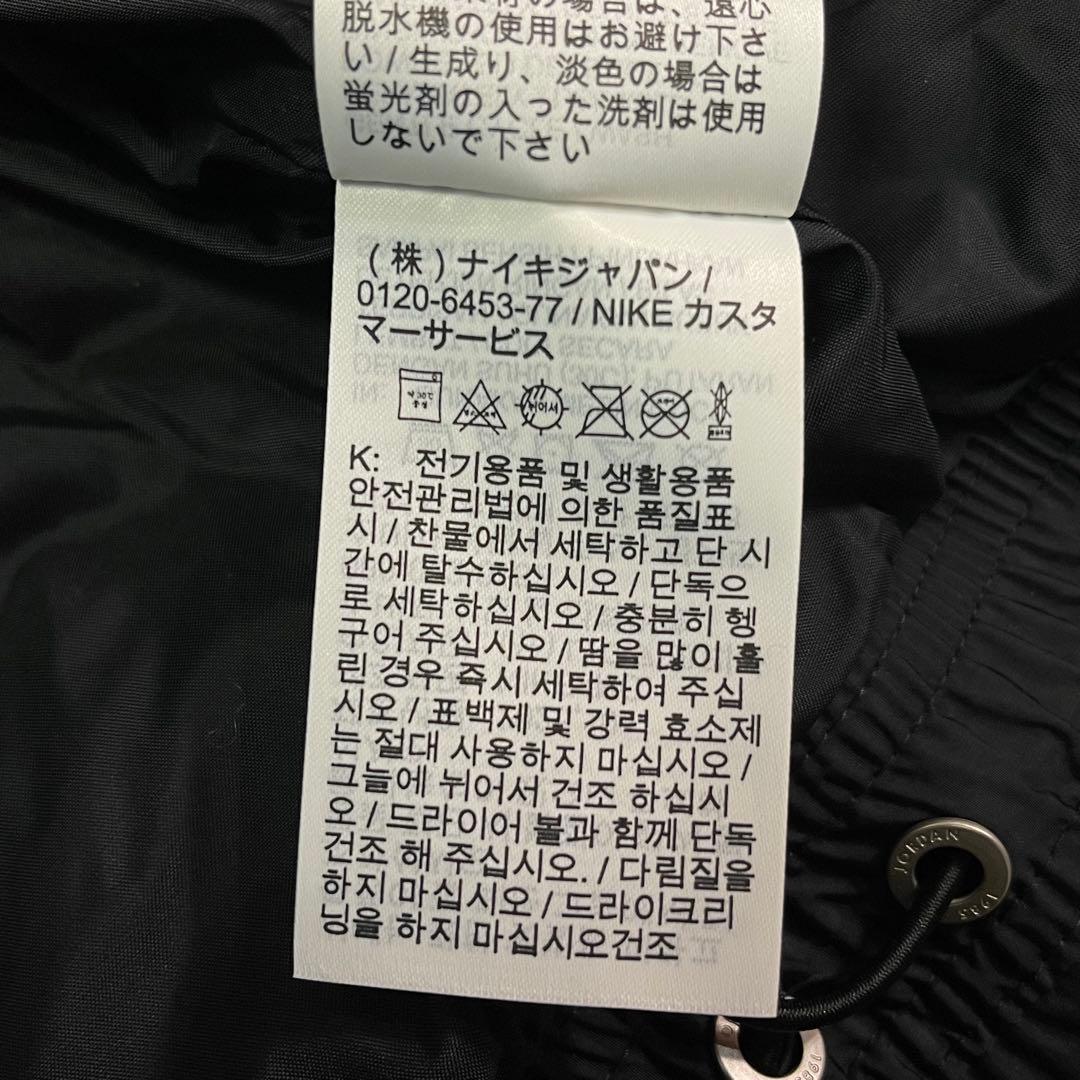 の場合は、遠心
脱水機の使用はお避け下さ
い / 生成り、淡色の場合は
蛍光剤の入った洗剤は使用
しないで下さい
( 株 ) ナイキジャパン /
0120-6453-77 / NIKE カスタ
マーサービス
약 30℃
중성
뉘어서
K: 전기용품 및 생활용품
안전관리법에 의한 품질표
시 / 찬물에서 세탁하고 단 시
간에 탈수하십시오 / 단독으
로 세탁하십시오 / 충분히 헹
구어 주십시오 / 땀을 많이 흘
린 경우 즉시 세탁하여 주십
시오 / 표백제 및 강력 효소제
는 절대 사용하지 마십시오 /
그늘에 뉘어서 건조 하십시
오 / 드라이어 볼과 함께 단독
건조 해 주십시오. / 다림질을
하지 마십시오 / 드라이크리
닝을 하지 마십시오건조
JORDAN
1985